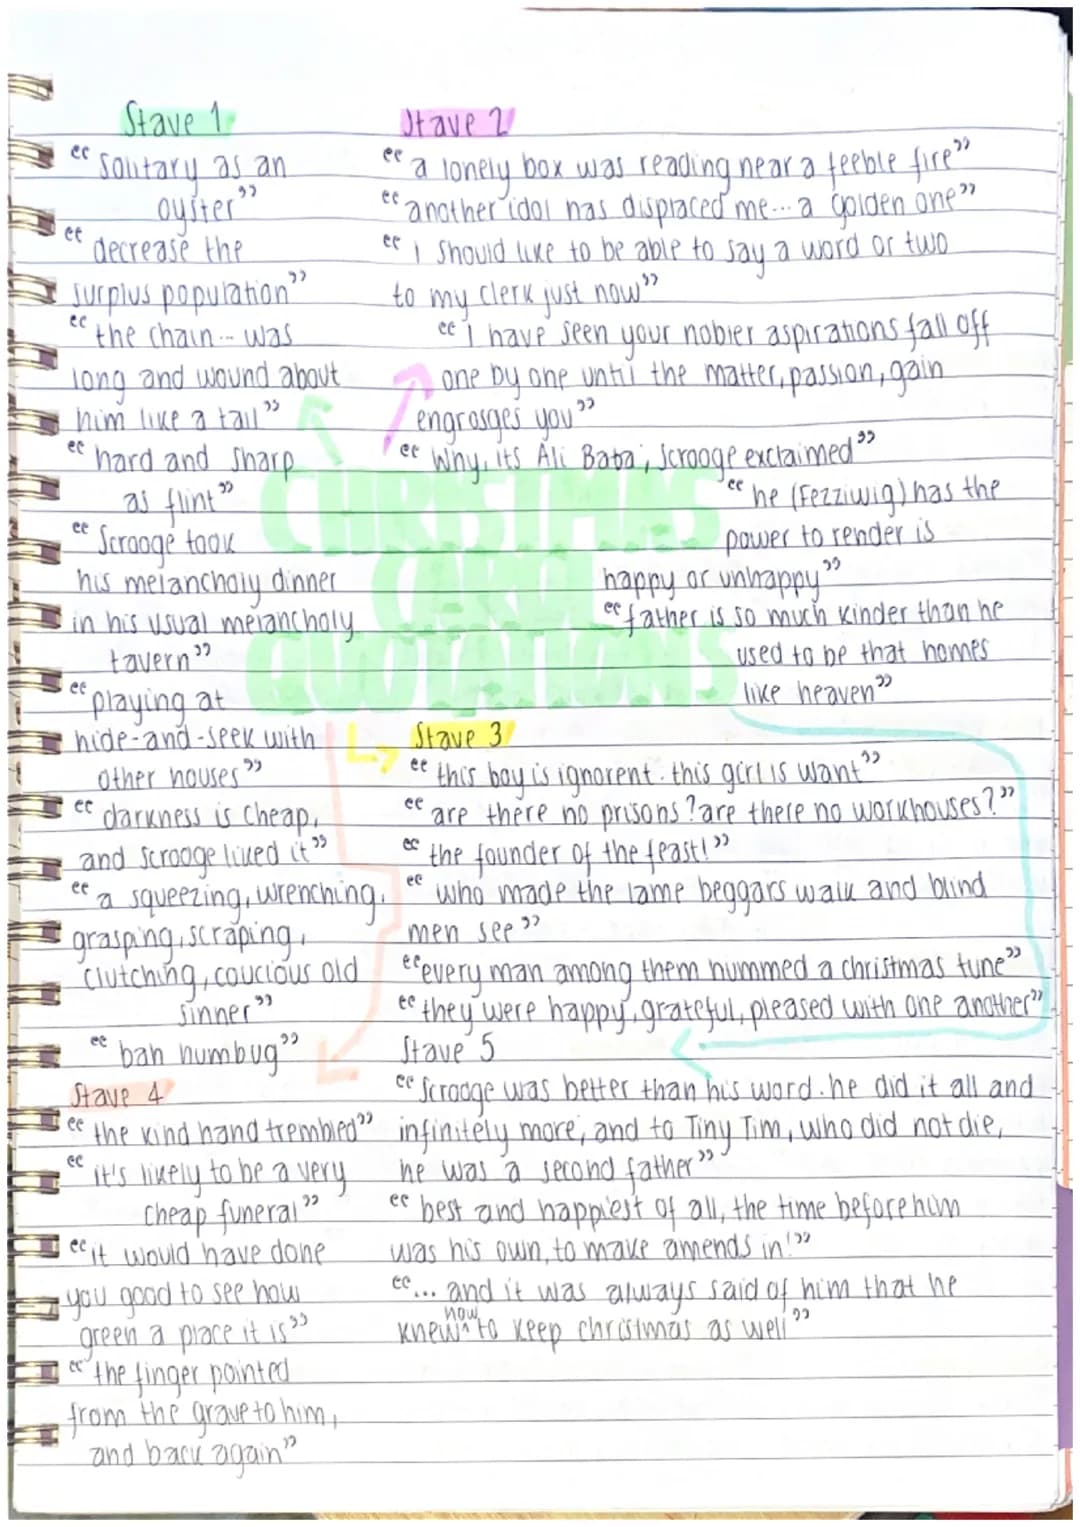 Stave 1
"solitary as an
oyster"
"decrease the
surplus population"
"the chain... was
long and wound about
him like a tail"
"hard and sharp
as flint"
"Scrooge took
his melancholy dinner
in his usual melancholy
tavern"
"playing at
hide-and-seek with
other houses"
"darkness is cheap,
and scrooge liked it"
"a squeezing, wrenching,
grasping, scraping,
clutching, coucious old
sinner"
"bah humbug"
Stave 2
"a lonely box was reading near a feeble fire"
"another idol has displaced me... a golden one"
"I should like to be able to say a word or two
to my clerk just now"
"I have seen your nobler aspirations fall off
one by one until the matter, passion, gain
engrosges you"
"Why, its Ali Baba, Scrooge exclaimed"
"he (Fezziwig) has the
power to render is
happy or unhappy"
"father is so much kinder than he
used to be that homes
like heaven"
CHRISTMAS
CAROL
QUOTATIONS
Stave 3
"this boy is ignorent. this girl is want"
"are there no prisons? are there no workhouses?"
"the founder of the feast!"
"who made the lame beggars walk and blind
men see"
"every man among them hummed a christmas tune"
"they were happy, grateful, pleased with one another"
Stave 4
"the kind hand trembled"
"it's likely to be a very
cheap funeral"
"it would have done
you good to see how
green a place it is"
"the finger pointed
from the grave to him,
and back again"
Stave 5
"Scrooge was better than his word. he did it all and
infinitely more, and to Tiny Tim, who did not die,
he was a second father"
"best and happiest of all, the time before him
was his own, to make amends in!"
"... and it was always said of him that he
knew how to keep christmas as well"